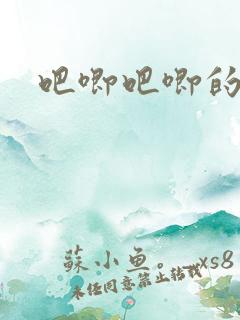 吧唧吧唧的
蘇小魚。xs8
未经同意禁止转载